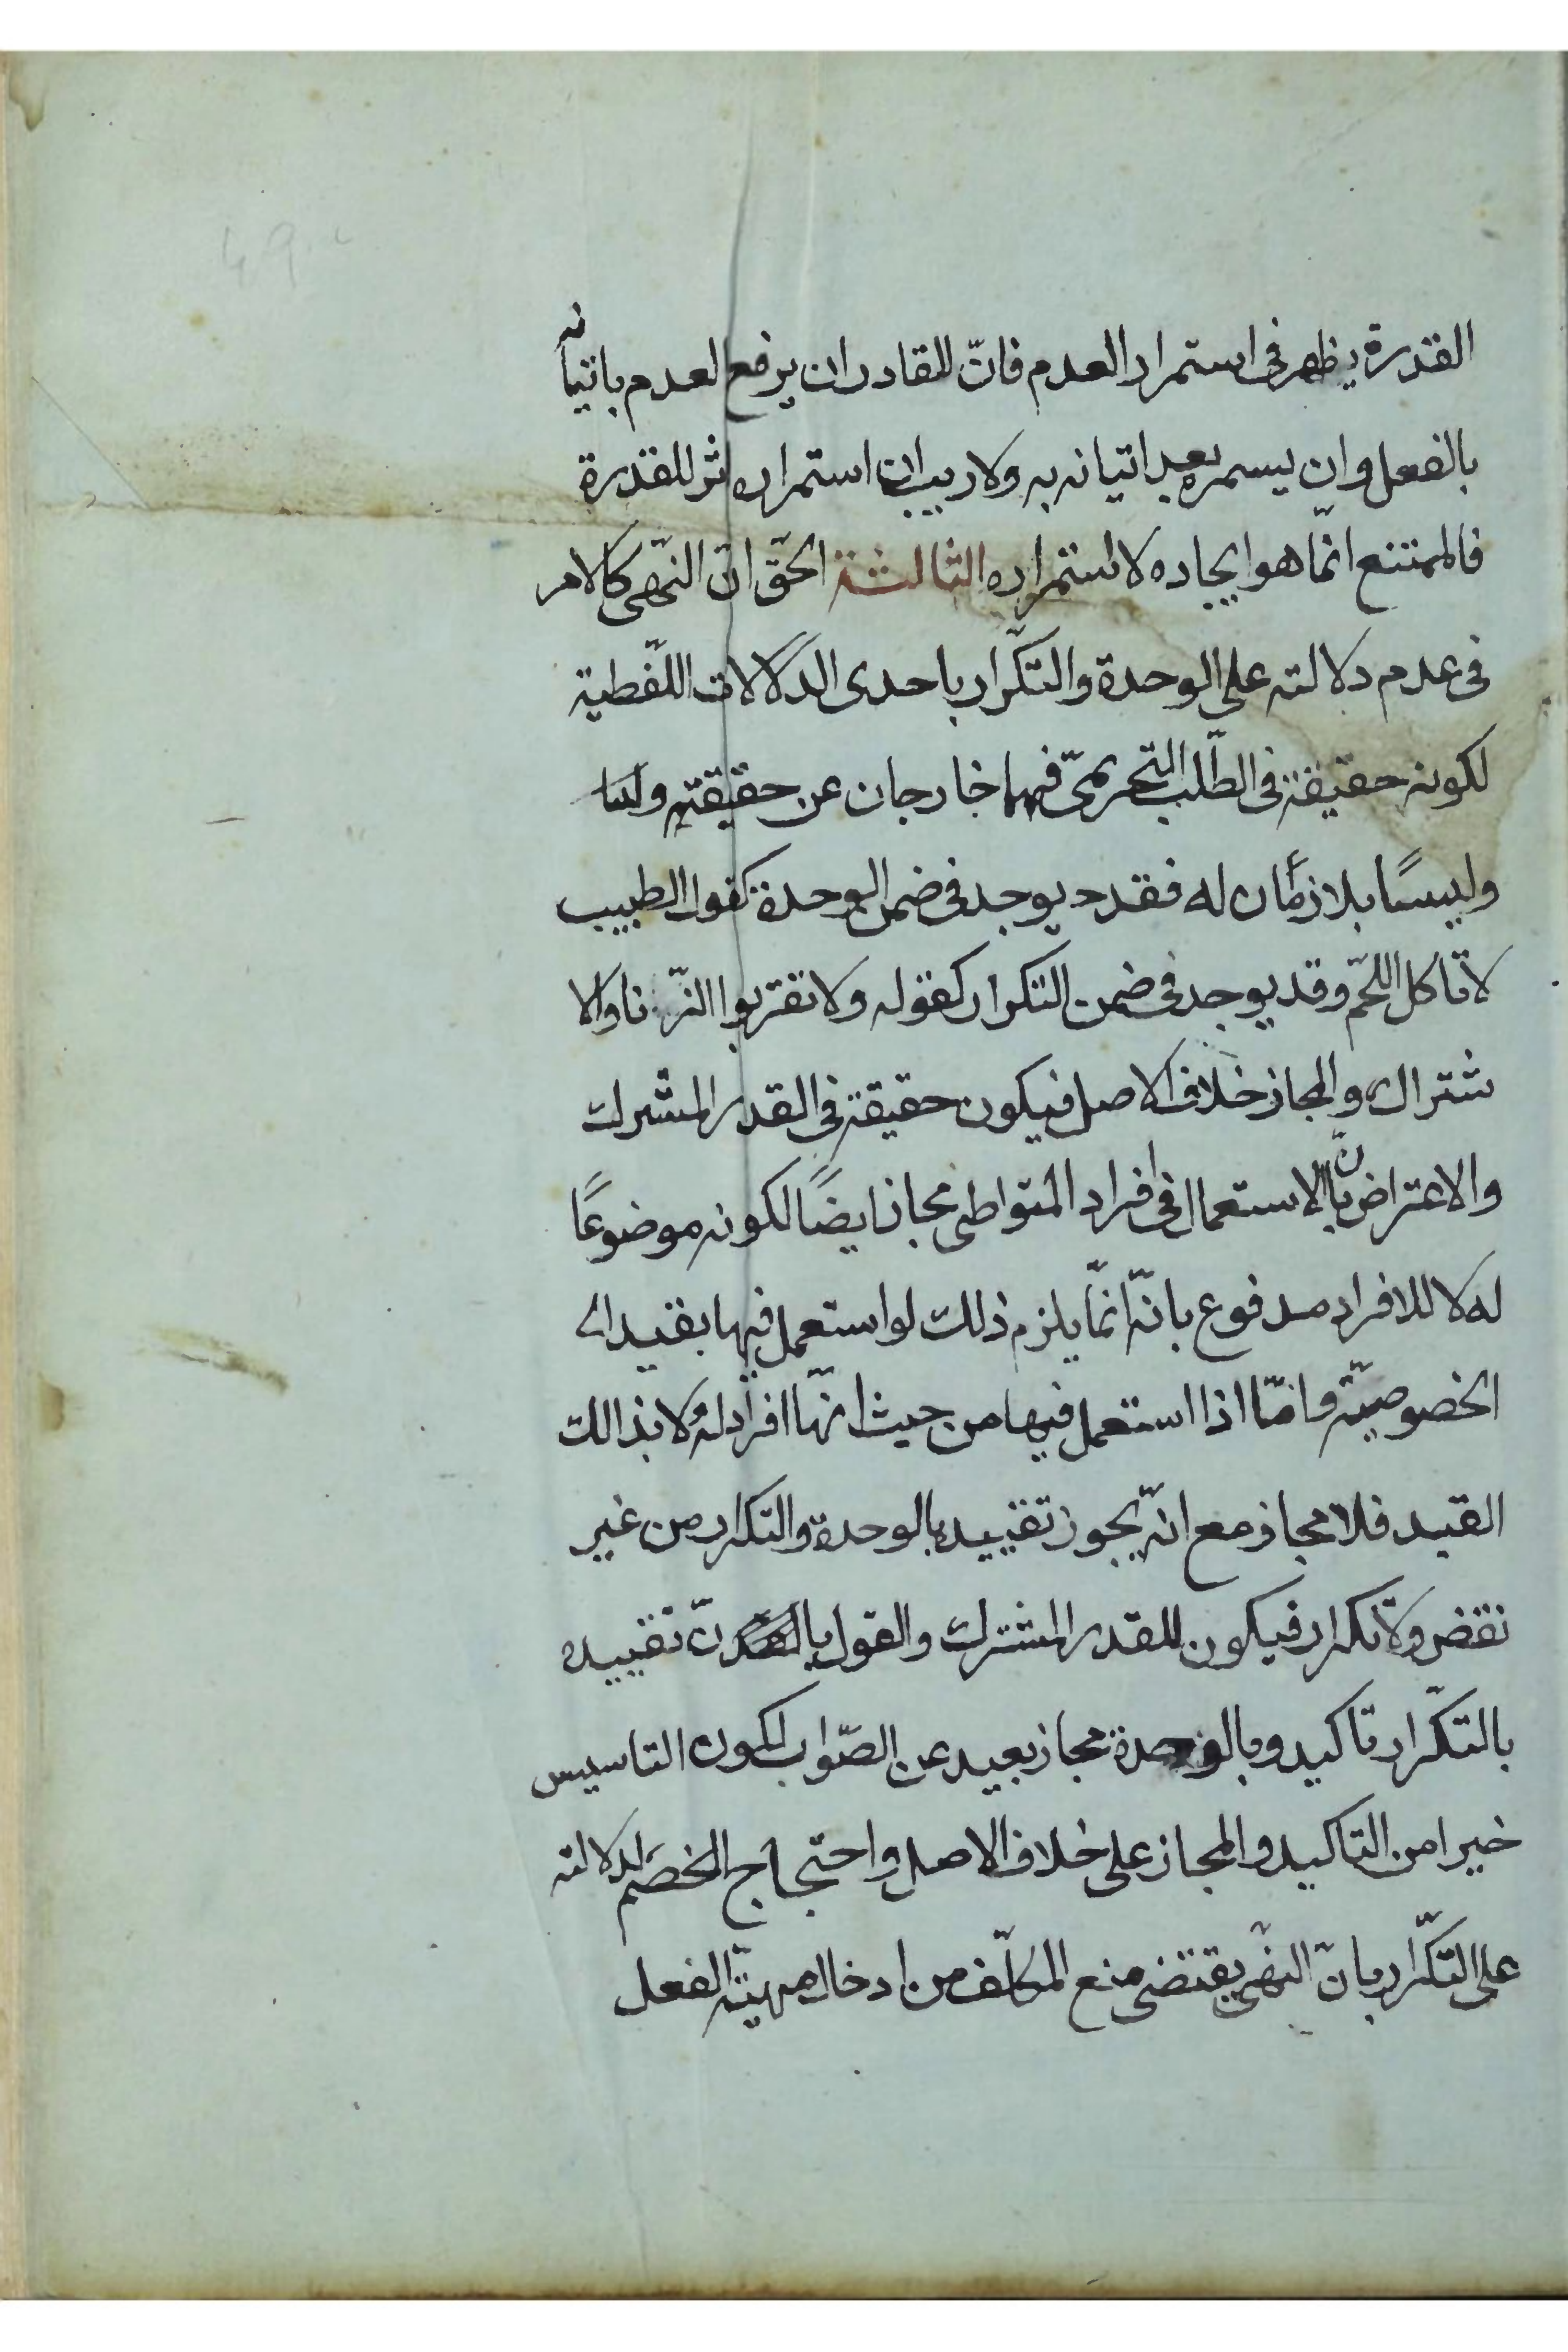 القدرة يظهر فى استمرار العدم فانّ للقادر ان يرفع لعدم باتيانه
بالفعل وان يسمره بعد اتيانه به ولا ريب ان استمراره اثر للقدرة
فالممتنع انّما هو ايجاده لا استمراره الثالثة الحقّ انّ النّهى كالامر
فى عدم دلالته على الوحدة والتكّرار باحدى الدّلالات اللّفظية
لكونه حقيقة فى الطّلب التحريمىّ فهما خارجان عن حقيقته
وليسًا بلازمان له فقد يوجد فى ضمن الوحدة كقول الطبيب
لا تاكل اللّحم وقد يوجد فى ضمن التكرار كقوله ولا تقربوا الزّنا والا
شتراك والمجاز خلاف الاصل فيكون حقيقة فى القدر المشترك
والاعتراض بانّ الاستعمال فى افراد المتواطى مجاز ايضًا لكونه موضوعًا
له لا للافراد مدفوع بانّه انّما يلزم ذلك لو استعمل فيها بقيد
الخصوصيّة وامّا اذا استعمل فيها من حيث انّها افراد له لا بذالك
القيد فلا مجاز مع انّه يجوز تقييده بالوحدة والتكرار من غير
نقض ولا تكرار فيكون للقدر المشترك والقول بانّ تقييده
بالتكّرار تاكيد وبالوحدة مجاز بعيد عن الصّواب لكون التاسيس
خيرا من التاكيد والمجاز على خلاف الاصل واحتجاج الخصم لدلالته
على التكّرار بانّ النهّى يقتضى منع المكلّف من ادخال مهيّة الفعل